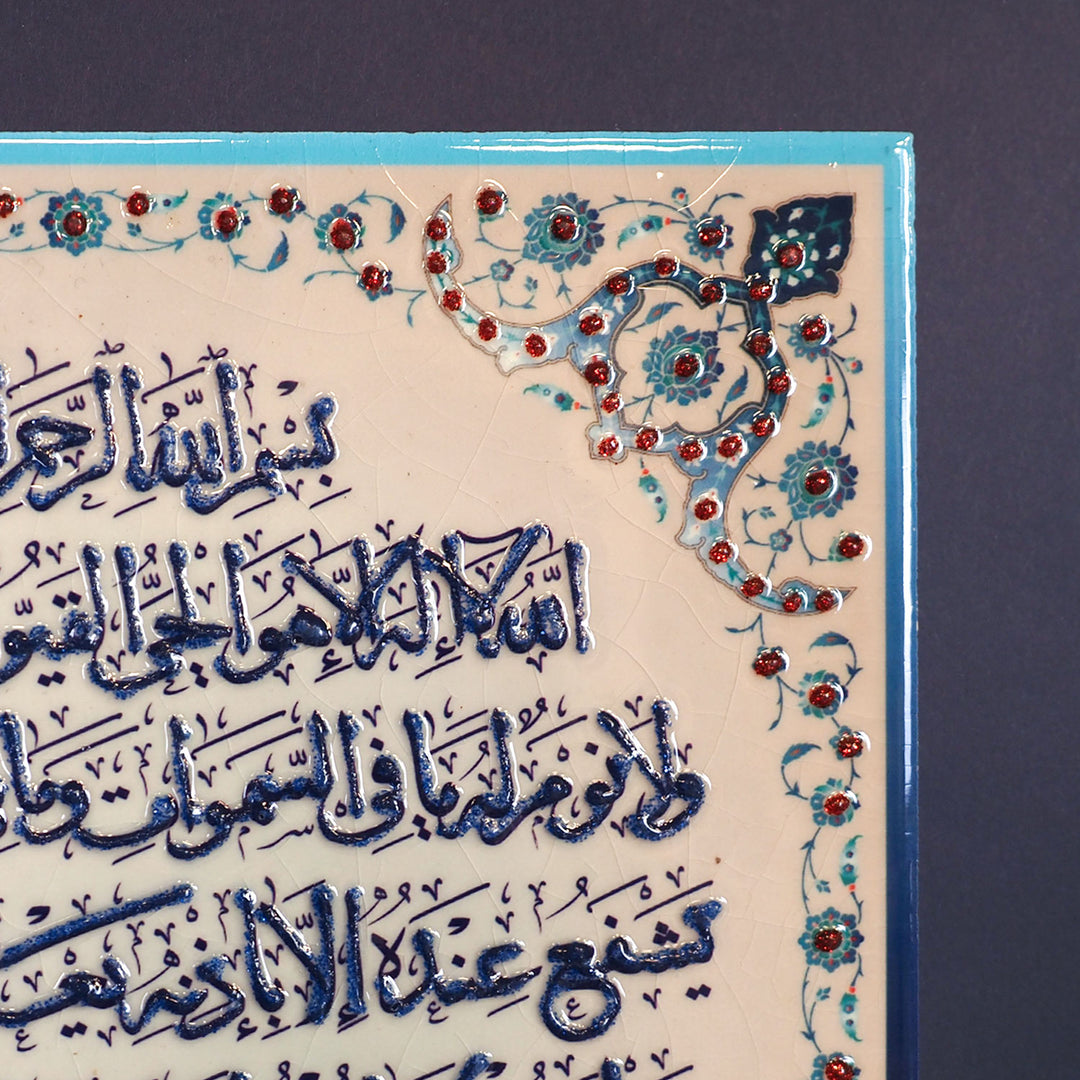 بِسْمِ اللَّهِ الرَّحْمَ
اللَّهُ لَا إِلَهَ إِلَّا هُوَ الْحَيُّ الْقَيُّو
وَلَا نَوْمٌ لَهُ مَا فِي السَّمَوَاتِ وَمَا
يَشْفَعُ عِنْدَهُ إِلَّا بِإِذْنِهِ يَعْ